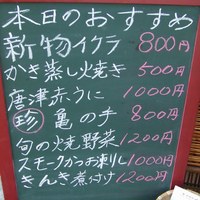 本日のおすすめ
新物イクラ 800円
かき蒸し焼き 500円
唐津赤うに 1000円
珍 亀の手 800円
旬の焼野菜 1200円
スモークかつお刺し 1000円
きんき煮付け 1200円